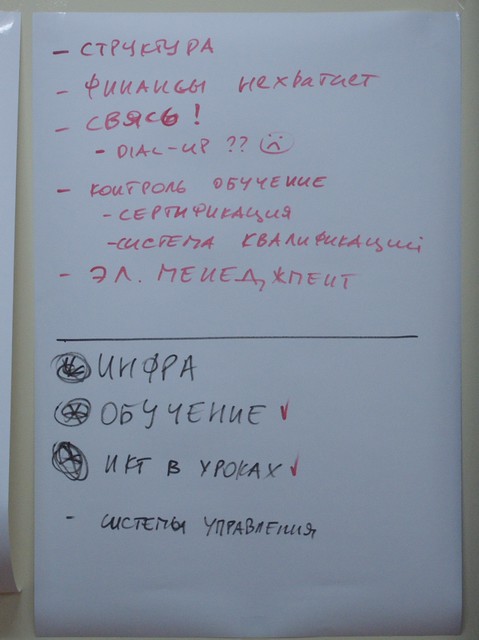 - СТРУКТУРА
- ФИНАНСЫ нехватает
- СВЯСЬ!
- DIAL-UP ??
- КОНТРОЛЬ ОБУЧЕНИЕ
- СЕРТИФИКАЦИЯ
- СИСТЕМА КВАЛИФИКАЦИЙ
- ЭЛ. МЕНЕДЖМЕНТ
ИНФРА
ОБУЧЕНИЕ ✓
ИКТ В УРОКАХ ✓
- СИСТЕМЫ УПРАВЛЕНИЯ